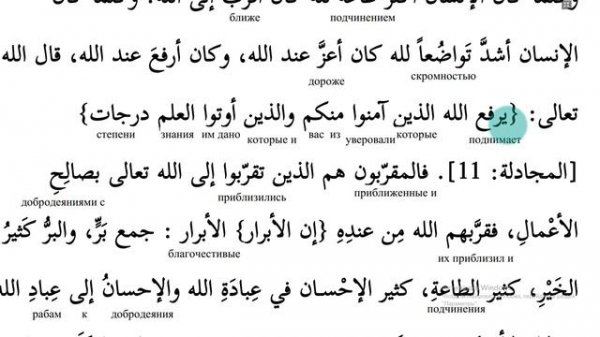 ближе подчинением
الإنسان أشدَّ تَواضُعاً لله كان أعزَّ عند الله، وكان أرفعَ عند الله، قال الله
дороже скромностью
تعالى: {يرفع الله الذين آمنوا منكم والذين أوتوا العلم درجات}
степени знания им дано которые и вас из уверовали которые поднимает
[المجادلة: 11]. فالمقرّبون هم الذين تقرّبوا إلى الله تعالى بصالِحِ
добродеяниями с приблизились приближенные и
الأعْمالِ، فقرَّبهم الله مِن عندِهِ {إن الأبرار} الأبرار : جمع بَرٍّ، والبرُّ كَثيرُ
благочестивые их приблизил и
الخَيْرِ، كثير الطاعةِ، كثير الإحْسان في عِبادَةِ الله والإحسانُ إلى عِبادِ الله
рабам к добродеяния подчинения